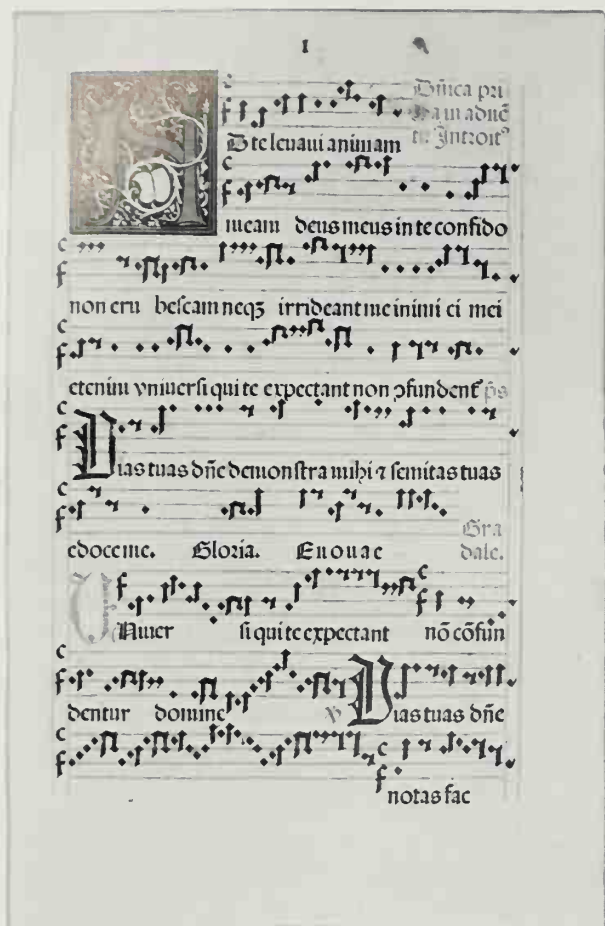 I
Dñica pri
ma in aduẽ
tu. Introitꝰ
D te leuaui animam
meam deus meus in te confido
non eru bescam neqꝫ irrideant me inimi ci mei
etenim vniuersi qui te expectant non ↄfundent̃ p̃s
Uias tuas dñe demonstra mihi ⁊ semitas tuas
edoce me. Gloria. Euouae
Gra
dale.
Uniuer si qui te expectant nõ cõfun
dentur domine ℣ Uias tuas dñe
notas fac